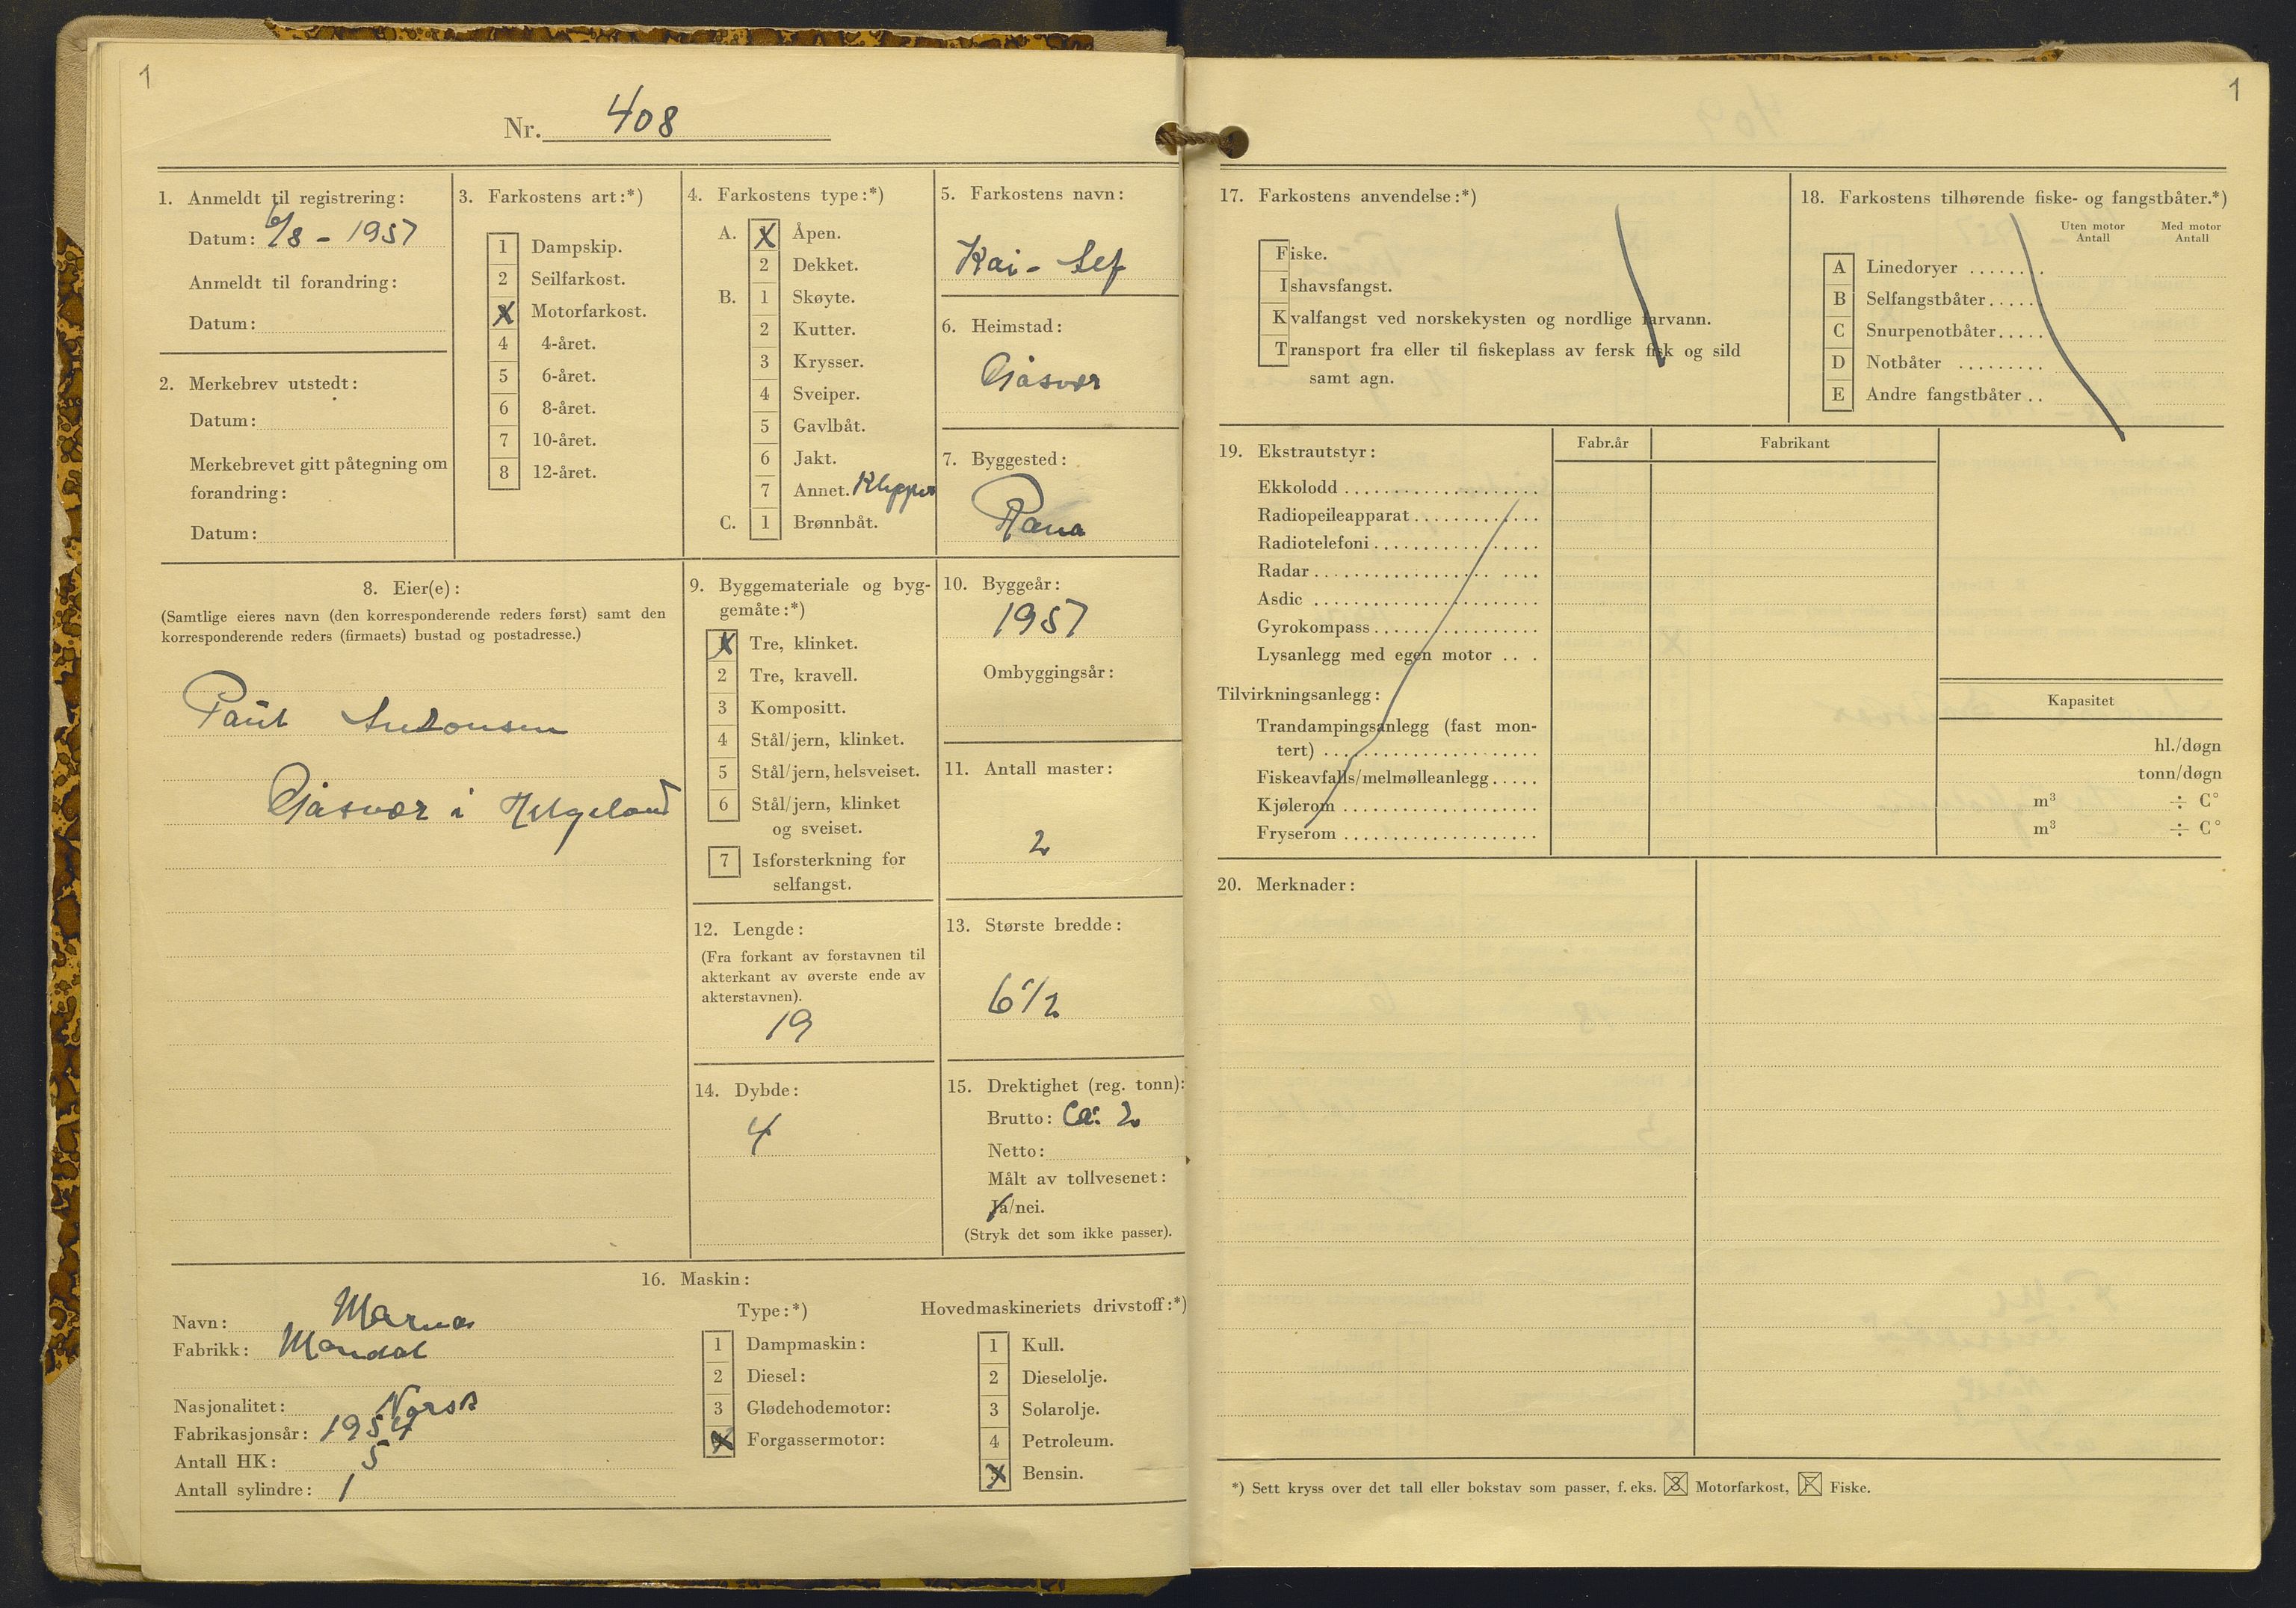 1
Nr. 408
1. Anmeldt til registrering:
Datum: 6/8 - 1957
Anmeldt til forandring:
Datum:
2. Merkebrev utstedt:
Datum:
Merkebrevet gitt påtegning om
forandring:
Datum:
3. Farkostens art:*)
1 Dampskip.
2 Seilfarkost.
X Motorfarkost.
4 4-året.
5 6-året.
6 8-året.
7 10-året.
8 12-året.
4. Farkostens type:*)
A. X Åpen.
2 Dekket.
B. 1 Skøyte.
2 Kutter.
3 Krysser.
4 Sveiper.
5 Gavlbåt.
6 Jakt.
7 Annet. Klipper
C. 1 Brønnbåt.
5. Farkostens navn:
Kai-
6. Heimstad:
Gåsvær
7. Byggested:
Rana
8. Eier(e):
(Samtlige eieres navn (den korresponderende reders først) samt den
korresponderende reders (firmaets) bustad og postadresse.)
Paul Antonsen
Gåsvær i Helgeland
9. Byggemateriale og byg-
gemåte:*)
X Tre, klinket.
2 Tre, kravell.
3 Kompositt.
4 Stål/jern, klinket.
5 Stål/jern, helsveiset.
6 Stål/jern, klinket
og sveiset.
7 Isforsterkning for
selfangst.
10. Byggeår:
1957
Ombyggingsår:
11. Antall master:
2
12. Lengde:
(Fra forkant av forstavnen til
akterkant av øverste ende av
akterstavnen).
19
13. Største bredde:
6 1/2
14. Dybde:
4
15. Drektighet (reg. tonn):
Brutto: Ca: 2
Netto:
Målt av tollvesenet:
Ja/nei.
(Stryk det som ikke passer).
16. Maskin:
Navn: Marna
Fabrikk: Mandal
Nasjonalitet: Norsk
Fabrikasjonsår: 1954
Antall HK: 5
Antall sylindre: 1
Type:*)
1 Dampmaskin:
2 Diesel:
3 Glødehodemotor:
X Forgassermotor:
Hovedmaskineriets drivstoff:*)
1 Kull.
2 Dieselolje.
3 Solarolje.
4 Petroleum.
X Bensin.
1
17. Farkostens anvendelse:*)
Fiske.
Ishavsfangst.
Kvalfangst ved norskekysten og nordlige farvann.
Transport fra eller til fiskeplass av fersk fisk og sild
samt agn.
18. Farkostens tilhørende fiske- og fangstbåter.*)
Uten motor Med motor
Antall Antall
A Linedoryer ........
B Selfangstbåter.....
C Snurpenotbåter.....
D Notbåter .........
E Andre fangstbåter ..
19. Ekstrautstyr:
Fabr.år Fabrikant
Ekkolodd
Radiopeileapparat
Radiotelefoni
Radar
Asdic
Gyrokompass
Lysanlegg med egen motor ...
Tilvirkningsanlegg:
Kapasitet
Trandampingsanlegg (fast mon-
tert) hl./døgn
Fiskeavfalls/melmølleanlegg..... tonn/døgn
Kjølerom m³ ÷ C°
Fryserom m³ ÷ C°
20. Merknader:
*) Sett kryss over det tall eller bokstav som passer, f. eks. 3 Motorfarkost, F Fiske.